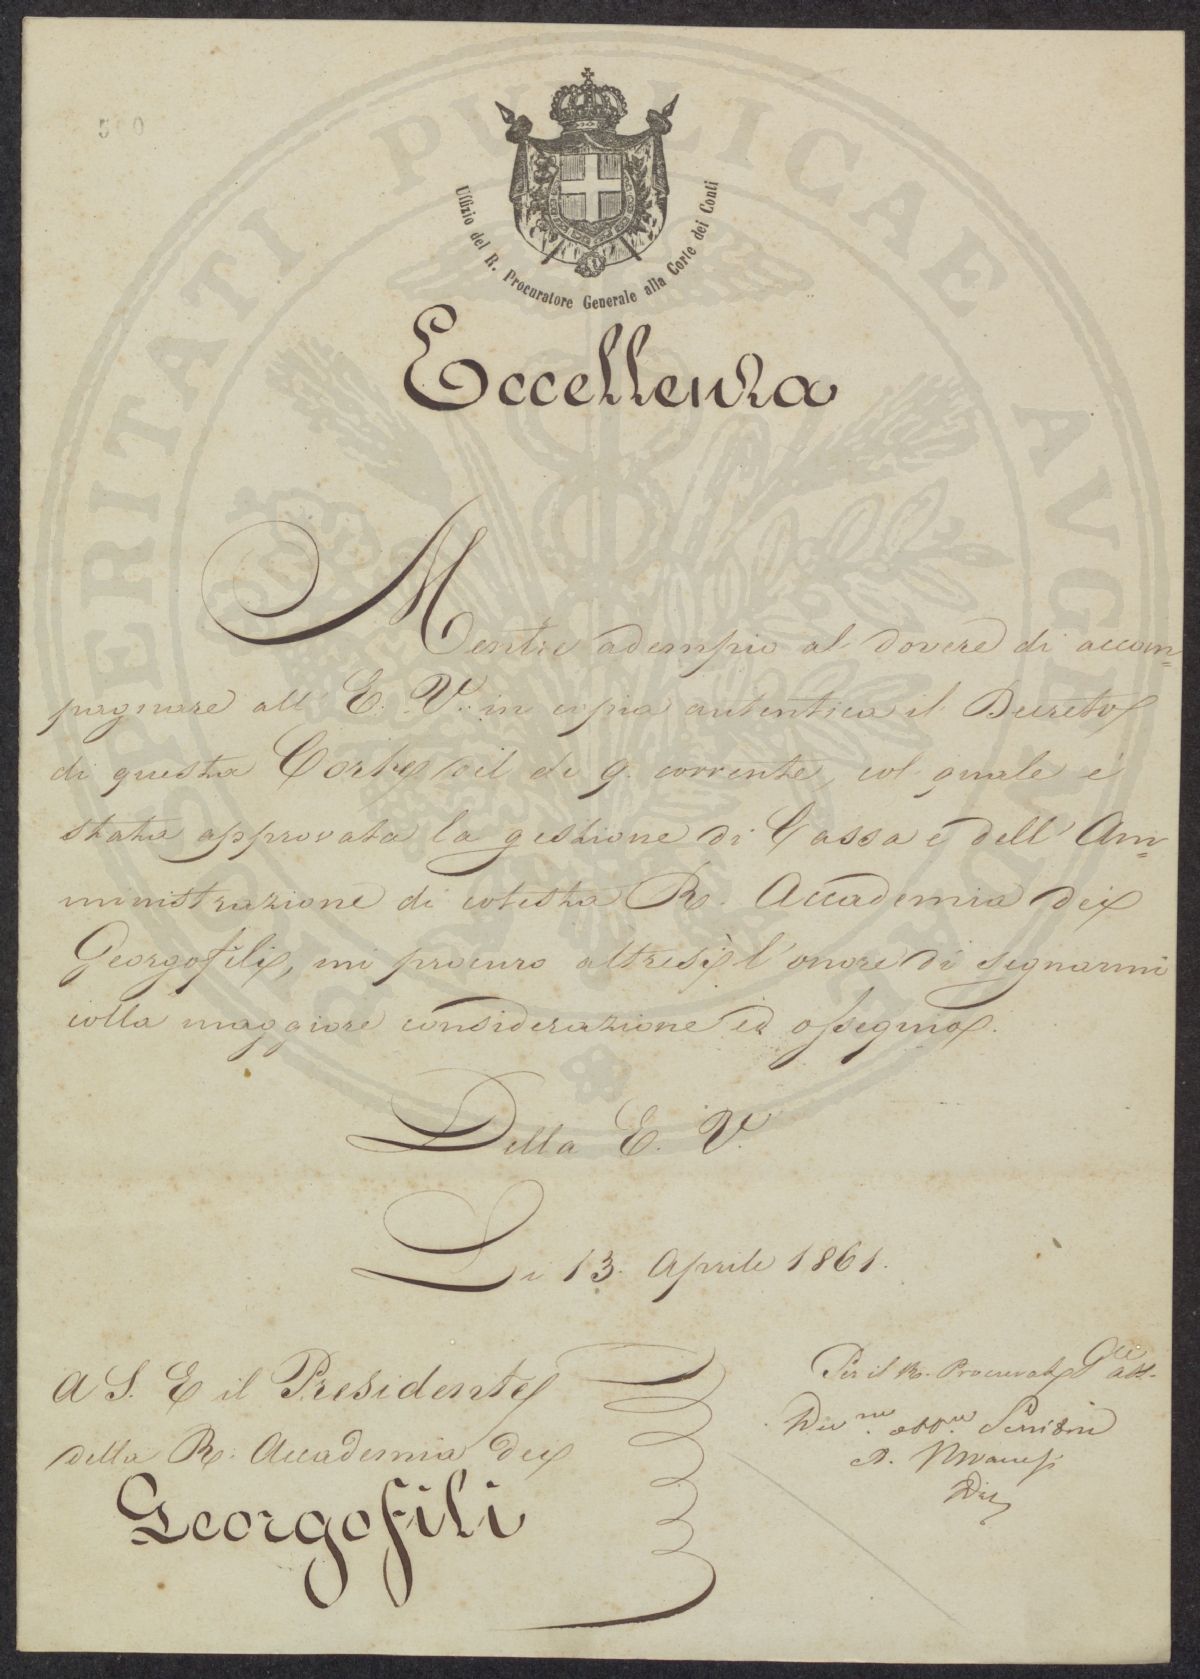 500
Uffizio del R. Procuratore Generale alla Corte dei Conti
PROSPERITATI PUBLICAE AVGENDAE
Eccellenza
Mentre adempio al dovere di accom=
pagnare all' E. V. in copia autentica il Decreto
di questa Corte, sil di 9. corrente, col quale è
stata approvata la gestione di Cassa e dell' Am=
ministrazione di cotesta R. Accademia dei
Georgofili, mi procuro altresì l'onore di segnarmi
colla maggiore considerazione ed ossequio.
Della E. V.
Li 13. Aprile 1861.
A S. E il Presidente
della R. Accademia dei
Georgofili
Per il R. Procurat. Gle ass.
Dev.mo obb.mo Servitore